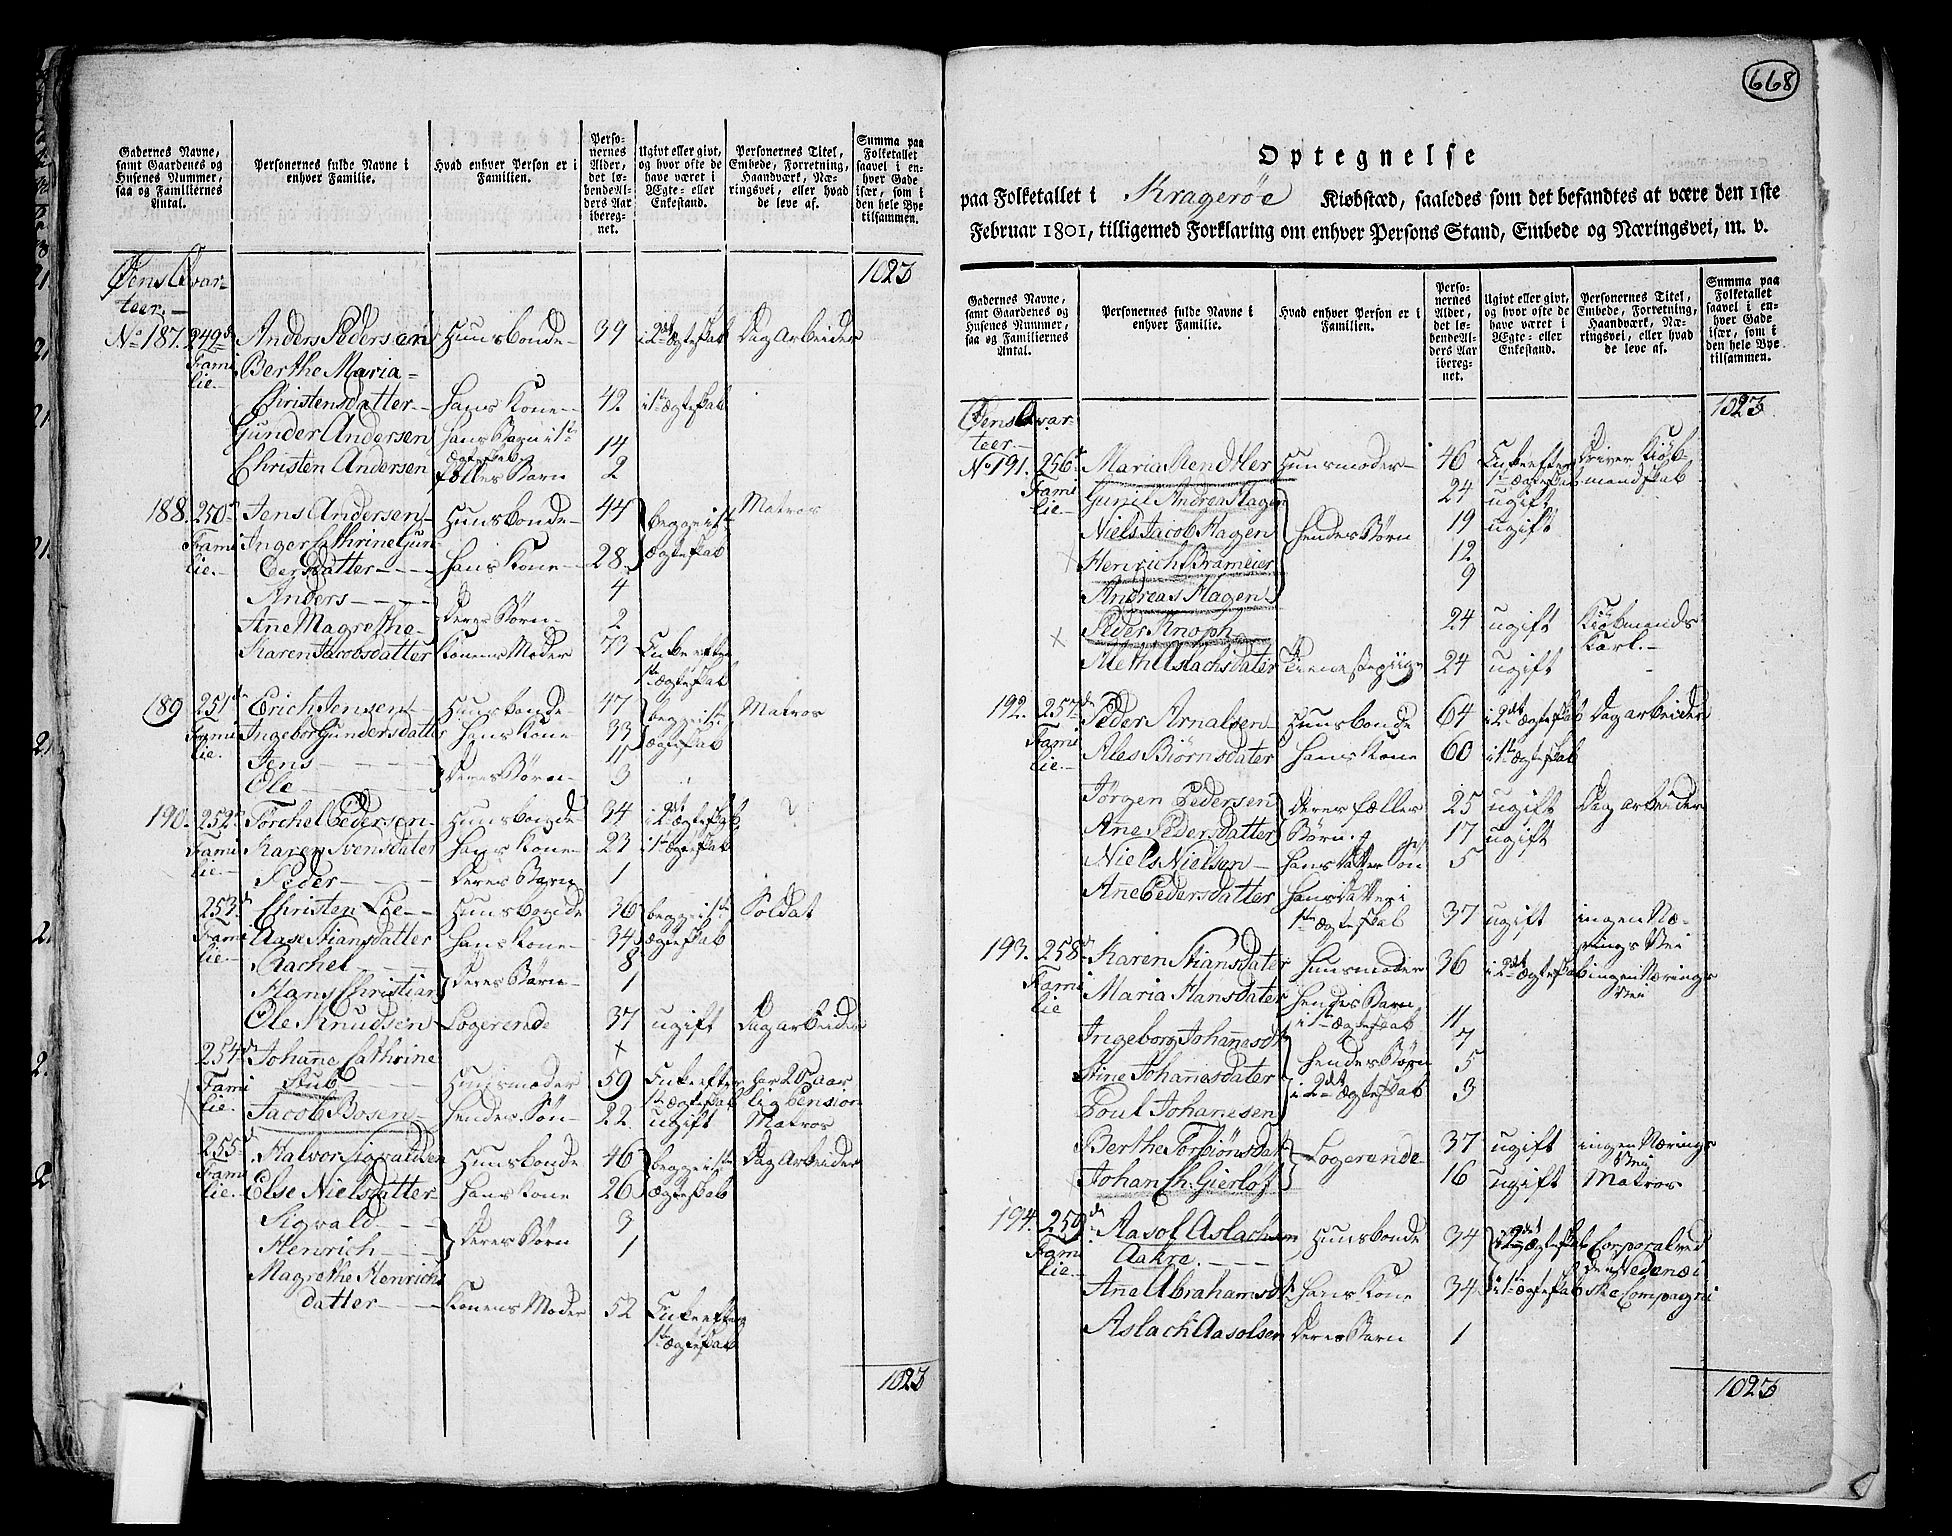 Gadernes Navne, samt Gaardenes og Husenes Nummer, saa og Familiernes Antal.
Personernes fulde Navne i enhver Familie.
Hvad enhver Person er i Familien.
Personernes Alder, det løbende Alders Aar iberegnet.
Ugivt eller givt, og hvor ofte de have været i Ægte- eller Enkestand.
Personernes Titel, Embede, Forretning, Haandværk, Næringsvei, eller hvad de leve af.
Summa paa Folketallet saavel i enhver Gade især, som i den hele Bye tilsammen.
Øens Qvar-
teer.
1023
No 187. 249de Anders Pedersen Huusbonde 39 i 2det ægteskab Dagarbeider
Familie. Berthe Maria
Christensdatter hans Kone 42 i 1te ægteskab
Gunder Andersen hans Barn i 1te ægteskab 14
Christen Andersen fælles Barn 2
188. 250de Jens Andersen Huusbonde 44 begge i 1te ægteskab Matros
Familie. Inger Cathrine Gun-
dersdatter hans Kone 28
Anders 4
Anne Magrethe deres Børn 2
Karen Jacobsdatter Konens Moder 73 Enke efter 1te ægteskab
189 251de Erich Jensen Huusbonde 47 begge i 1te ægteskab Matros
Familie. Ingebor Gundersdatter hans Kone 33
Jens 11
Ole deres Børn 3
190. 252de Torchel Pedersen Huusbonde 34 i 2det ægteskab ?
Familie. Karen Svensdater hans Kone 23 i 1te ægteskab
Peder deres Barn 1
253de Christen Lie Huusbonde 36 begge i 1te ægteskab Soldat
Familie. Aase Stiansdatter hans Kone 34
Rachel 8
Hans Christian deres Børn 1
Ole Knudsen Logerende 37 ugift Dagarbeider
254de Johanne Cathrine
Familie. Stub Huusmoder 59 Enke efter 1te ægteskab har 20 aar
lig Pension
Jacob Bosen hendes Søn 22 ugift Matros
255de Halvor Sigvaldsen Huusbonde 46 begge i 1te ægteskab Dagarbeider
Familie. Else Nielsdatter hans Kone 26
Sigvald 3
Henrich deres Børn 1
Magrethe Henrichs
datter Konens Moder 52 Enke efter 1te ægteskab
1023
668
Optegnelse
paa Folketallet i Kragerøe Kiøbstæd, saaledes som det befandtes at være den 1ste
Februar 1801, tilligemed Forklaring om enhver Persons Stand, Embede og Næringsvei, m. v.
Gadernes Navne, samt Gaardenes og Husenes Nummer, saa og Familiernes Antal.
Personernes fulde Navne i enhver Familie.
Hvad enhver Person er i Familien.
Personernes Alder, det løbende Alders Aar iberegnet.
Ugivt eller givt, og hvor ofte de have været i Ægte- eller Enkestand.
Personernes Titel, Embede, Forretning, Haandværk, Næringsvei, eller hvad de leve af.
Summa paa Folketallet saavel i enhver Gade især, som i den hele Bye tilsammen.
Øens Qvar-
teer.
1023
No 191. 256te Maria Hendler Huusmoder 46 Enke efter 1te ægteskab Driver Kiøb-
mandskab
Familie. Gunil Andrea Hagen 24 ugift
Niels Jacob Hagen hendes Børn 19 ugift
Henrich Brameier 12
Andreas Hagen 9
Peder Knoph 24 ugift Kiøbmands
Karl.
Aleth Aslachsdater Tienestepiige 24 ugift
192. 257de Peder Arnalsen Huusbonde 64 i 2det ægteskab Dagarbeider
Familie. Ales Biørnsdater hans Kone 60 i 1te ægteskab
Jørgen Pedersen deres fælles 25 ugift Dagarbeider
Ane Pedersdatter Børn 17 ugift
Niels Nielsen hans datter Søn 5
Anne Pedersdatter hans datter i
1te ægteskab 37 ugift ingen Næ-
rings Vei
193. 258de Karen Stiansdater Huusmoder 36 i 2det ægteskab ingen Nærings
Vei
Familie Maria Hansdater hendes Barn
i 1te ægteskab 11
Ingeborg Johannesdt 7
Stine Johannesdater hendes Børn 5
Poul Johanesen i 2det ægteskab 3
Berthe Torbiønsdat Logerende 37 ugift ingen Nærings
Vei
Johan Ch. Gierløf 16 ugift Matros
194. 259de Aasol Aslachsen Huusbonde 34 i 2det ægteskab Corporal ved
Familie. Aakre. den Nedenæi
Ane Abrahamsdt. hans Kone 34 i 1te ægteskab ske Compagni
Aslach Aasolsen deres Barn 1
1023